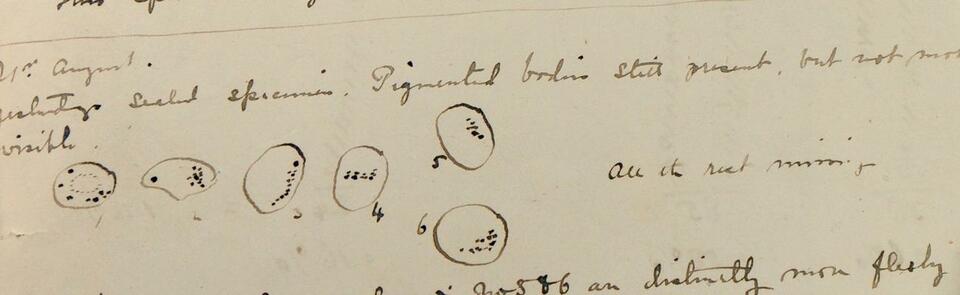 21st August.
Yesterdays sealed specimen. Pigmented bodies still present, but not more
visible.
5
All the rest missing
1 2 3 4
6
No 5 & 6 are distinctly more fleshy